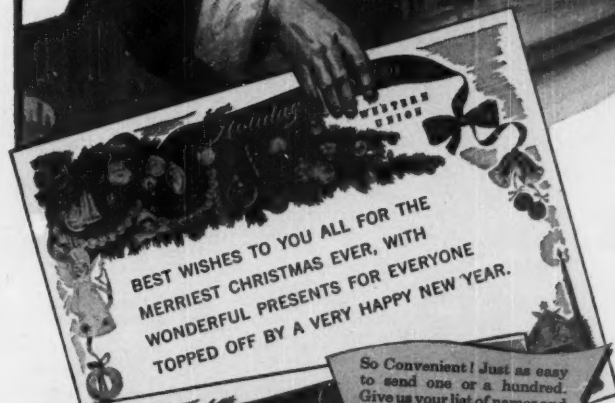 Holiday
WESTERN
UNION
BEST WISHES TO YOU ALL FOR THE
MERRIEST CHRISTMAS EVER, WITH
WONDERFUL PRESENTS FOR EVERYONE
TOPPED OFF BY A VERY HAPPY NEW YEAR.
So Convenient! Just as easy
to send one or a hundred.
Give us your list of names and